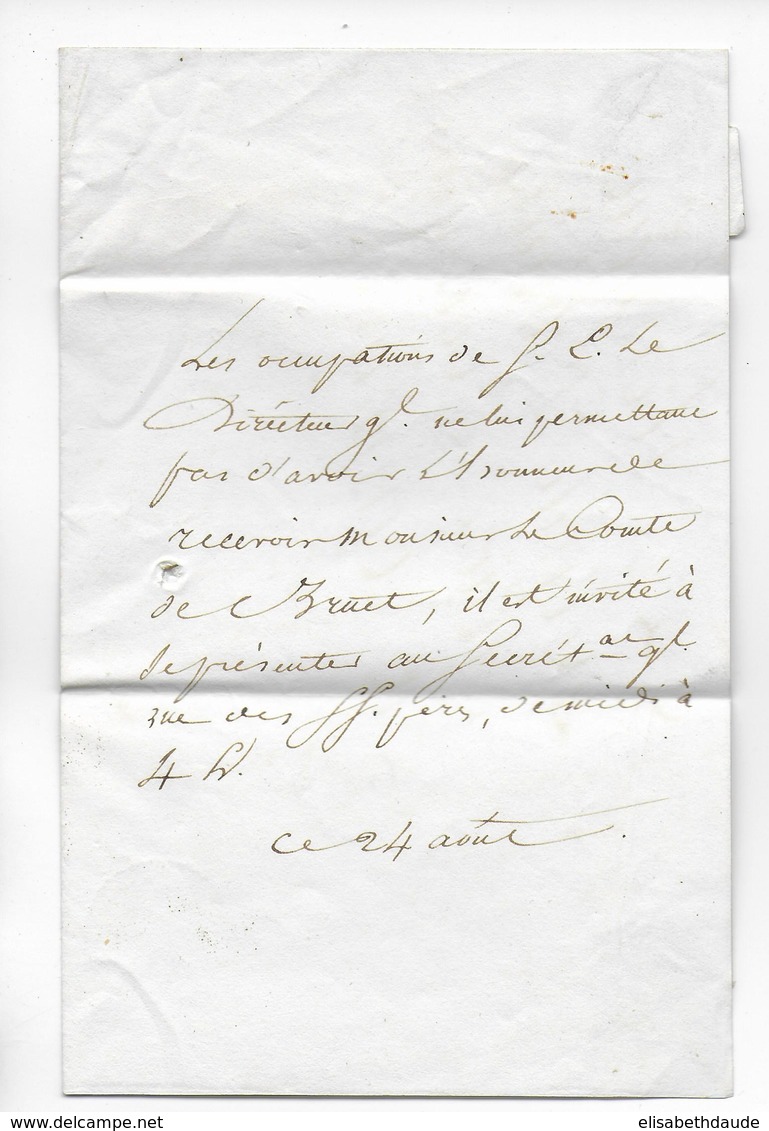 Les occupations de S. E. Le
Directeur gl. ne lui permettant
pas d'avoir L'honneur de
recevoir Monsieur Le Comte
de Bruet, il est invité à
se présenter au Secrét.ar gl.
rue des SS. pères, de midi à
4 h.
ce 24 août.
elisabethdaude